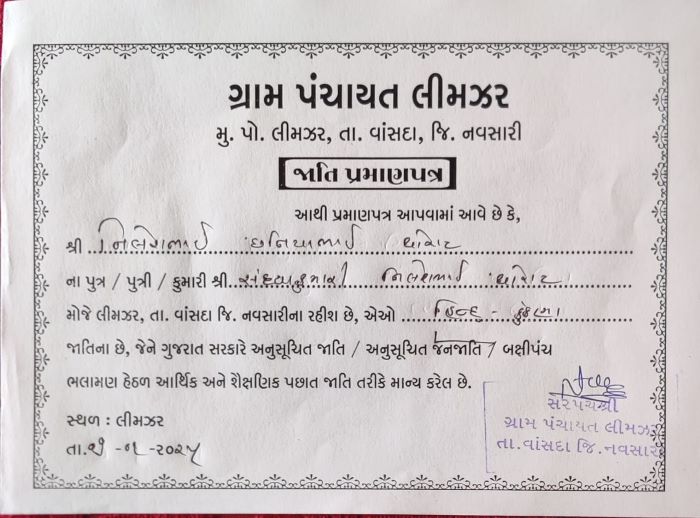 ગ્રામ પંચાયત લીમઝર
મુ. પો. લીમઝર, તા. વાંસદા, જિ. નવસારી
જાતિ પ્રમાણપત્ર
આથી પ્રમાણપત્ર આપવામાં આવે છે કે,
શ્રી
ના પુત્ર / પુત્રી / કુમારી શ્રી
મોજે લીમઝર, તા. વાંસદા જિ. નવસારીના રહીશ છે, એઓ હિન્દુ -
જાતિના છે, જેને ગુજરાત સરકારે અનુસૂચિત જાતિ / અનુસૂચિત જનજાતિ / બક્ષીપંચ
ભલામણ હેઠળ આર્થિક અને શૈક્ષણિક પછાત જાતિ તરીકે માન્ય કરેલ છે.
સ્થળ : લીમઝર
તા.
સરપંચશ્રી
ગ્રામ પંચાયત લીમઝર
તા. વાંસદા જિ. નવસારી